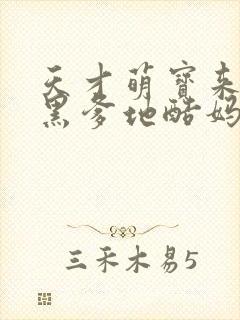 天才萌宝来
黑爹地酷妈
三禾木易5